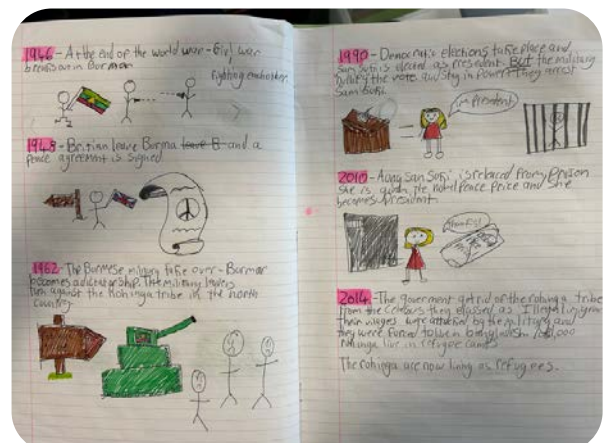 1946 - At the end of the world war - Civil war
breaks out in Burmar
fighting eachother
1948 - Britian leave Burma leave B and a
peace agreement is signed
1962 - The Burmese military take over - Burmar
becomes a dictatorship. The military leaders
turn against the Rohinga tribe in the north
country.
1990 - Democratic elections take place and
san suki is elected as president. But the military
the vote and stay in power they arrest
san suki.
i'm President
2010 - Aung San Suki is relaced from prison
she is given the nobel peace prize and she
becomes president.
thanks!
2014 - The goverment get rid of the rohinga tribe
from the they classed as Illegal
Their villages were attacked by the military and
they were forced to live in bangladesh
rohinga live in refugee camps
The rohinga are now living as refugees.